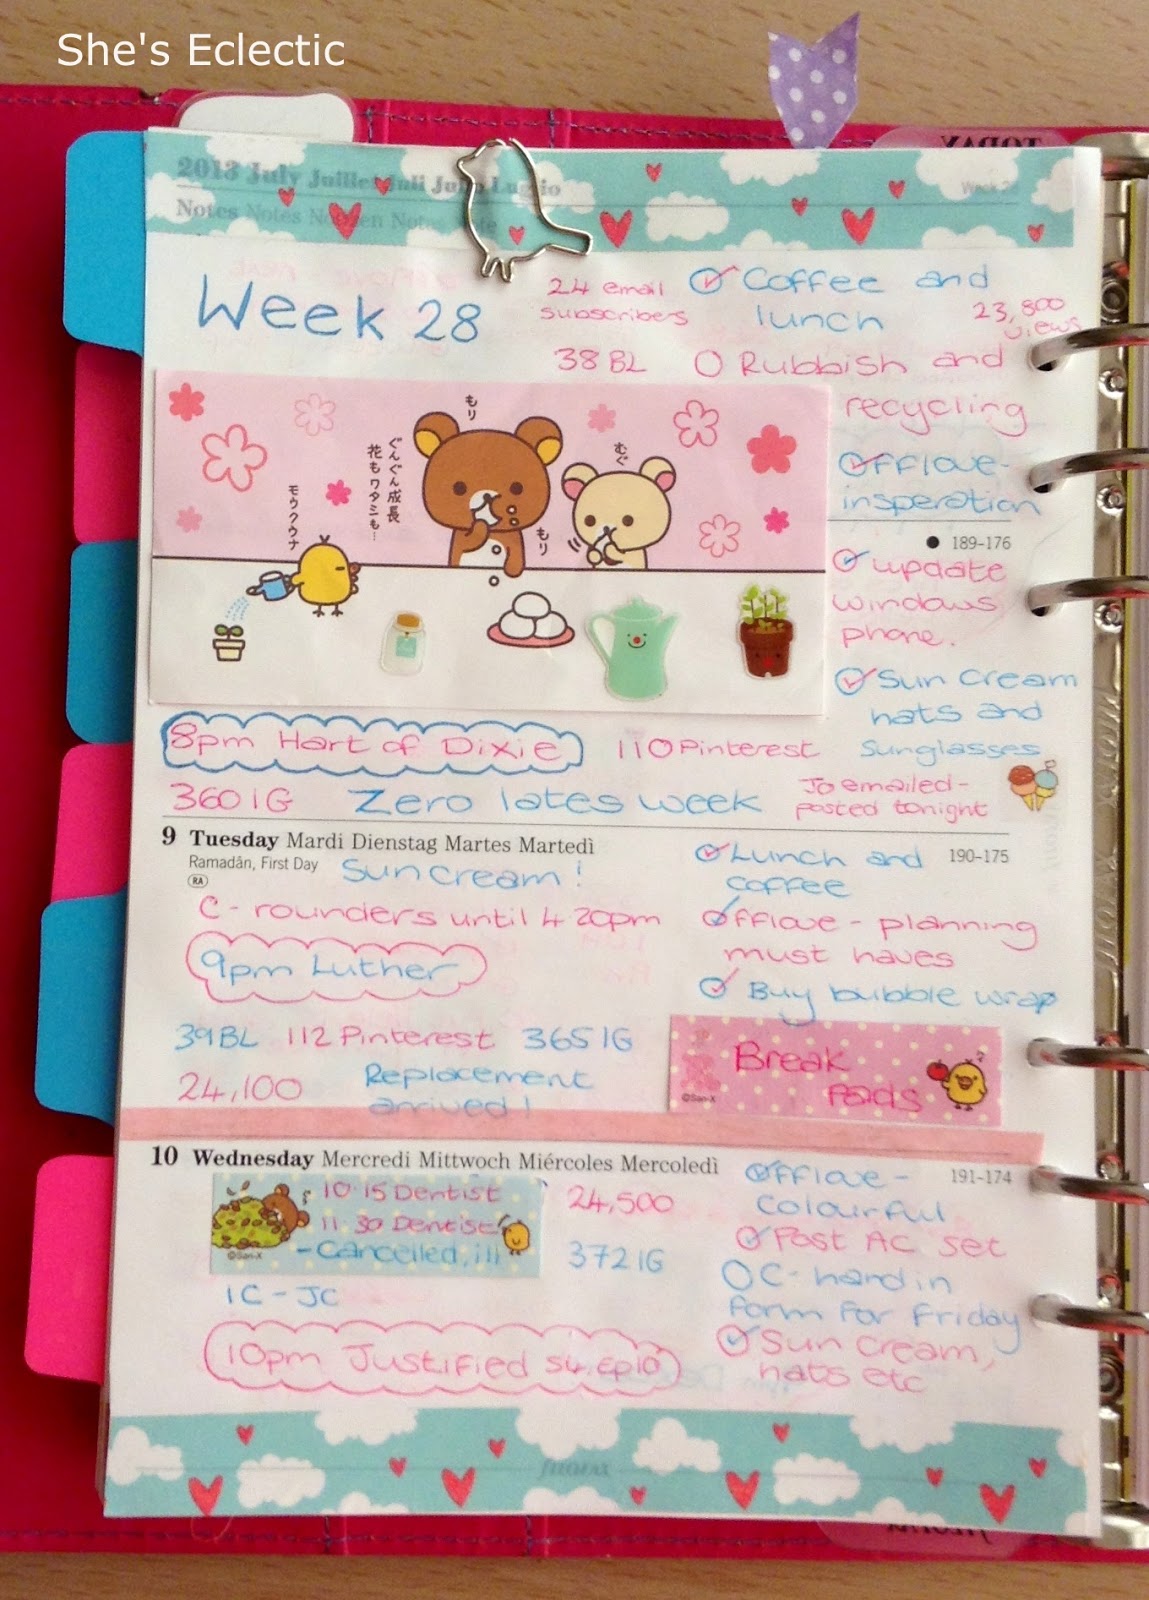 She's Eclectic
TODAY
2013 July Juillet Juli Julio Luglio
Notes Notes Notizen Notas Note
Week 28
24 email
subscribers
38 BL
Coffee and
lunch
23,800
views
Rubbish and
recycling
Offlove-
insperation
もり
むぐ
もり
ぐんぐん成長
花もワタシも…
モウクウナ
189-176
update
windows
phone.
Sun cream
hats and
sunglasses
8pm Hart of Dixie
110 Pinterest
360 IG
Zero lates week
Jo emailed-
posted tonight
9 Tuesday Mardi Dienstag Martes Martedì
Ramadān, First Day
RA
190-175
Sun cream!
C - rounders until 4 20pm
9pm Luther
39 BL 112 Pinterest 365 IG
24,100
Replacement
arrived!
Lunch and
coffee
Offlove - planning
must haves
Buy bubble wrap
Break
Pads
©San-X
10 Wednesday Mercredi Mittwoch Miércoles Mercoledì
191-174
10 15 Dentist
11 30 Dentist
- Cancelled, ill
©San-X
24,500
372 IG
1C - JC
10pm Justified S4, ep10
Offlove -
Colourful
Post AC set
C - hand in
form for Friday
Sun cream,
hats etc
filofax